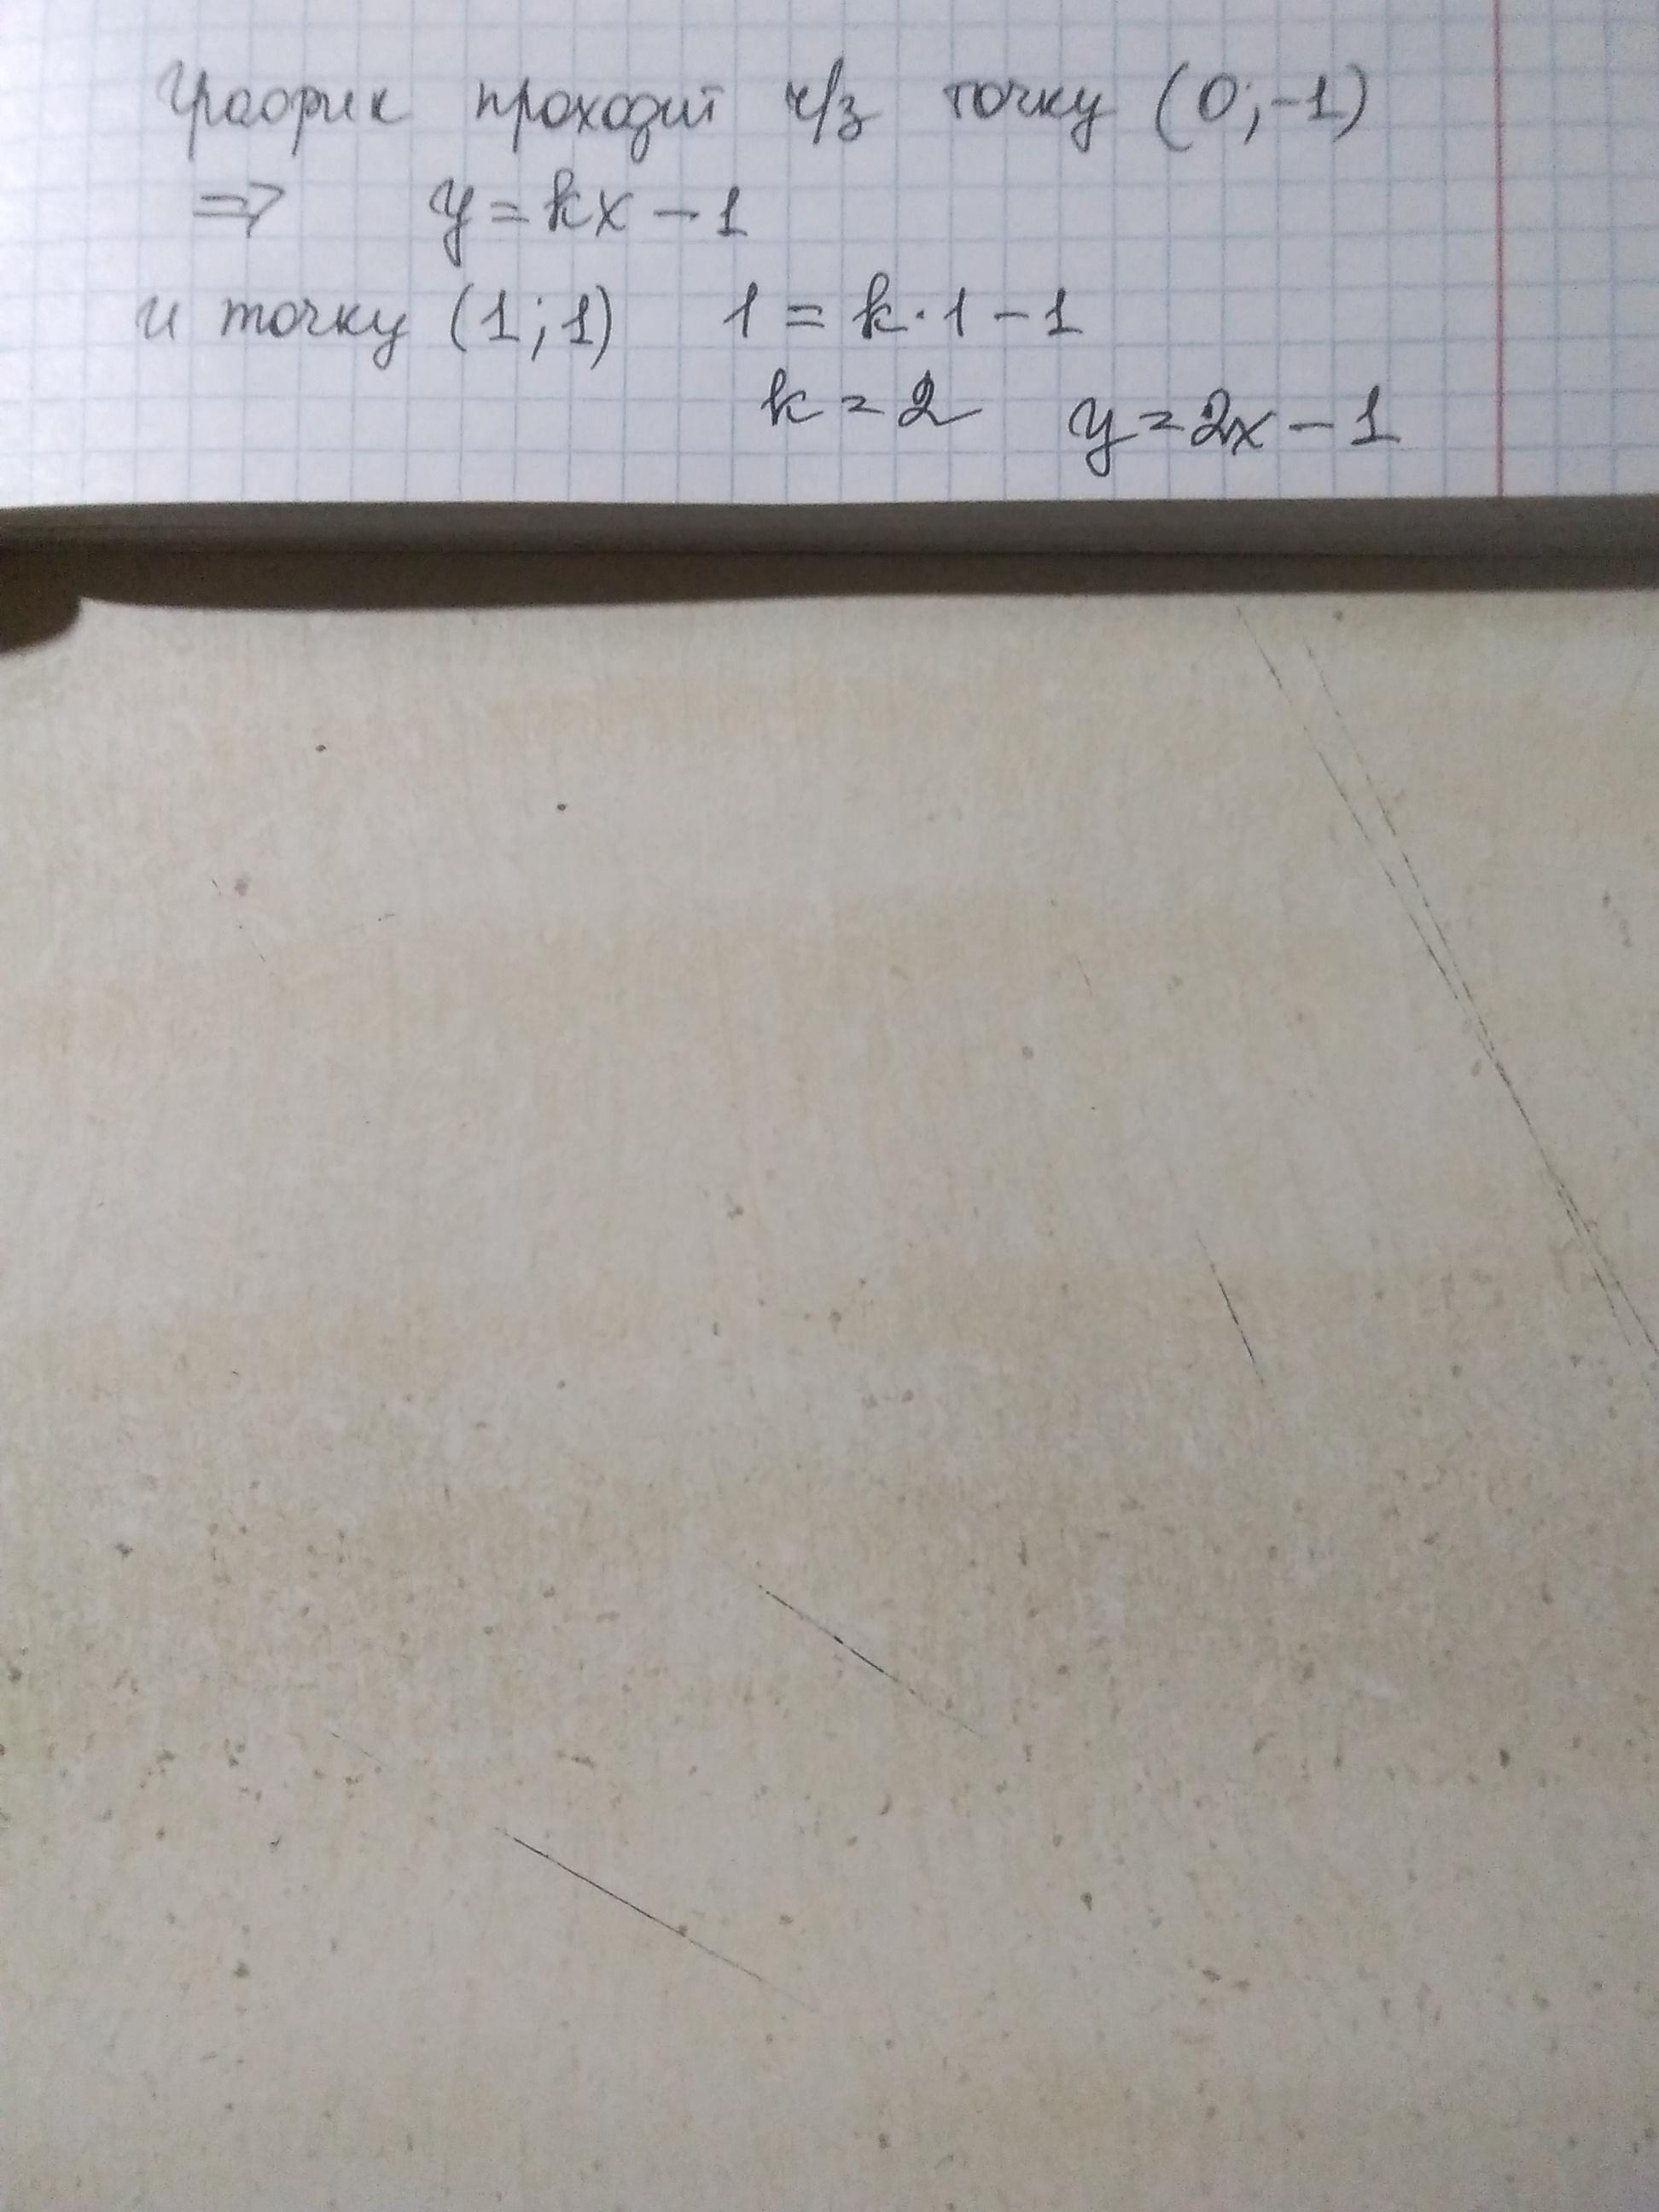 График проходит ч/з точку (0;-1)
=> y = kx - 1
и точку (1;1) 1 = k·1 - 1
k = 2 y = 2x - 1